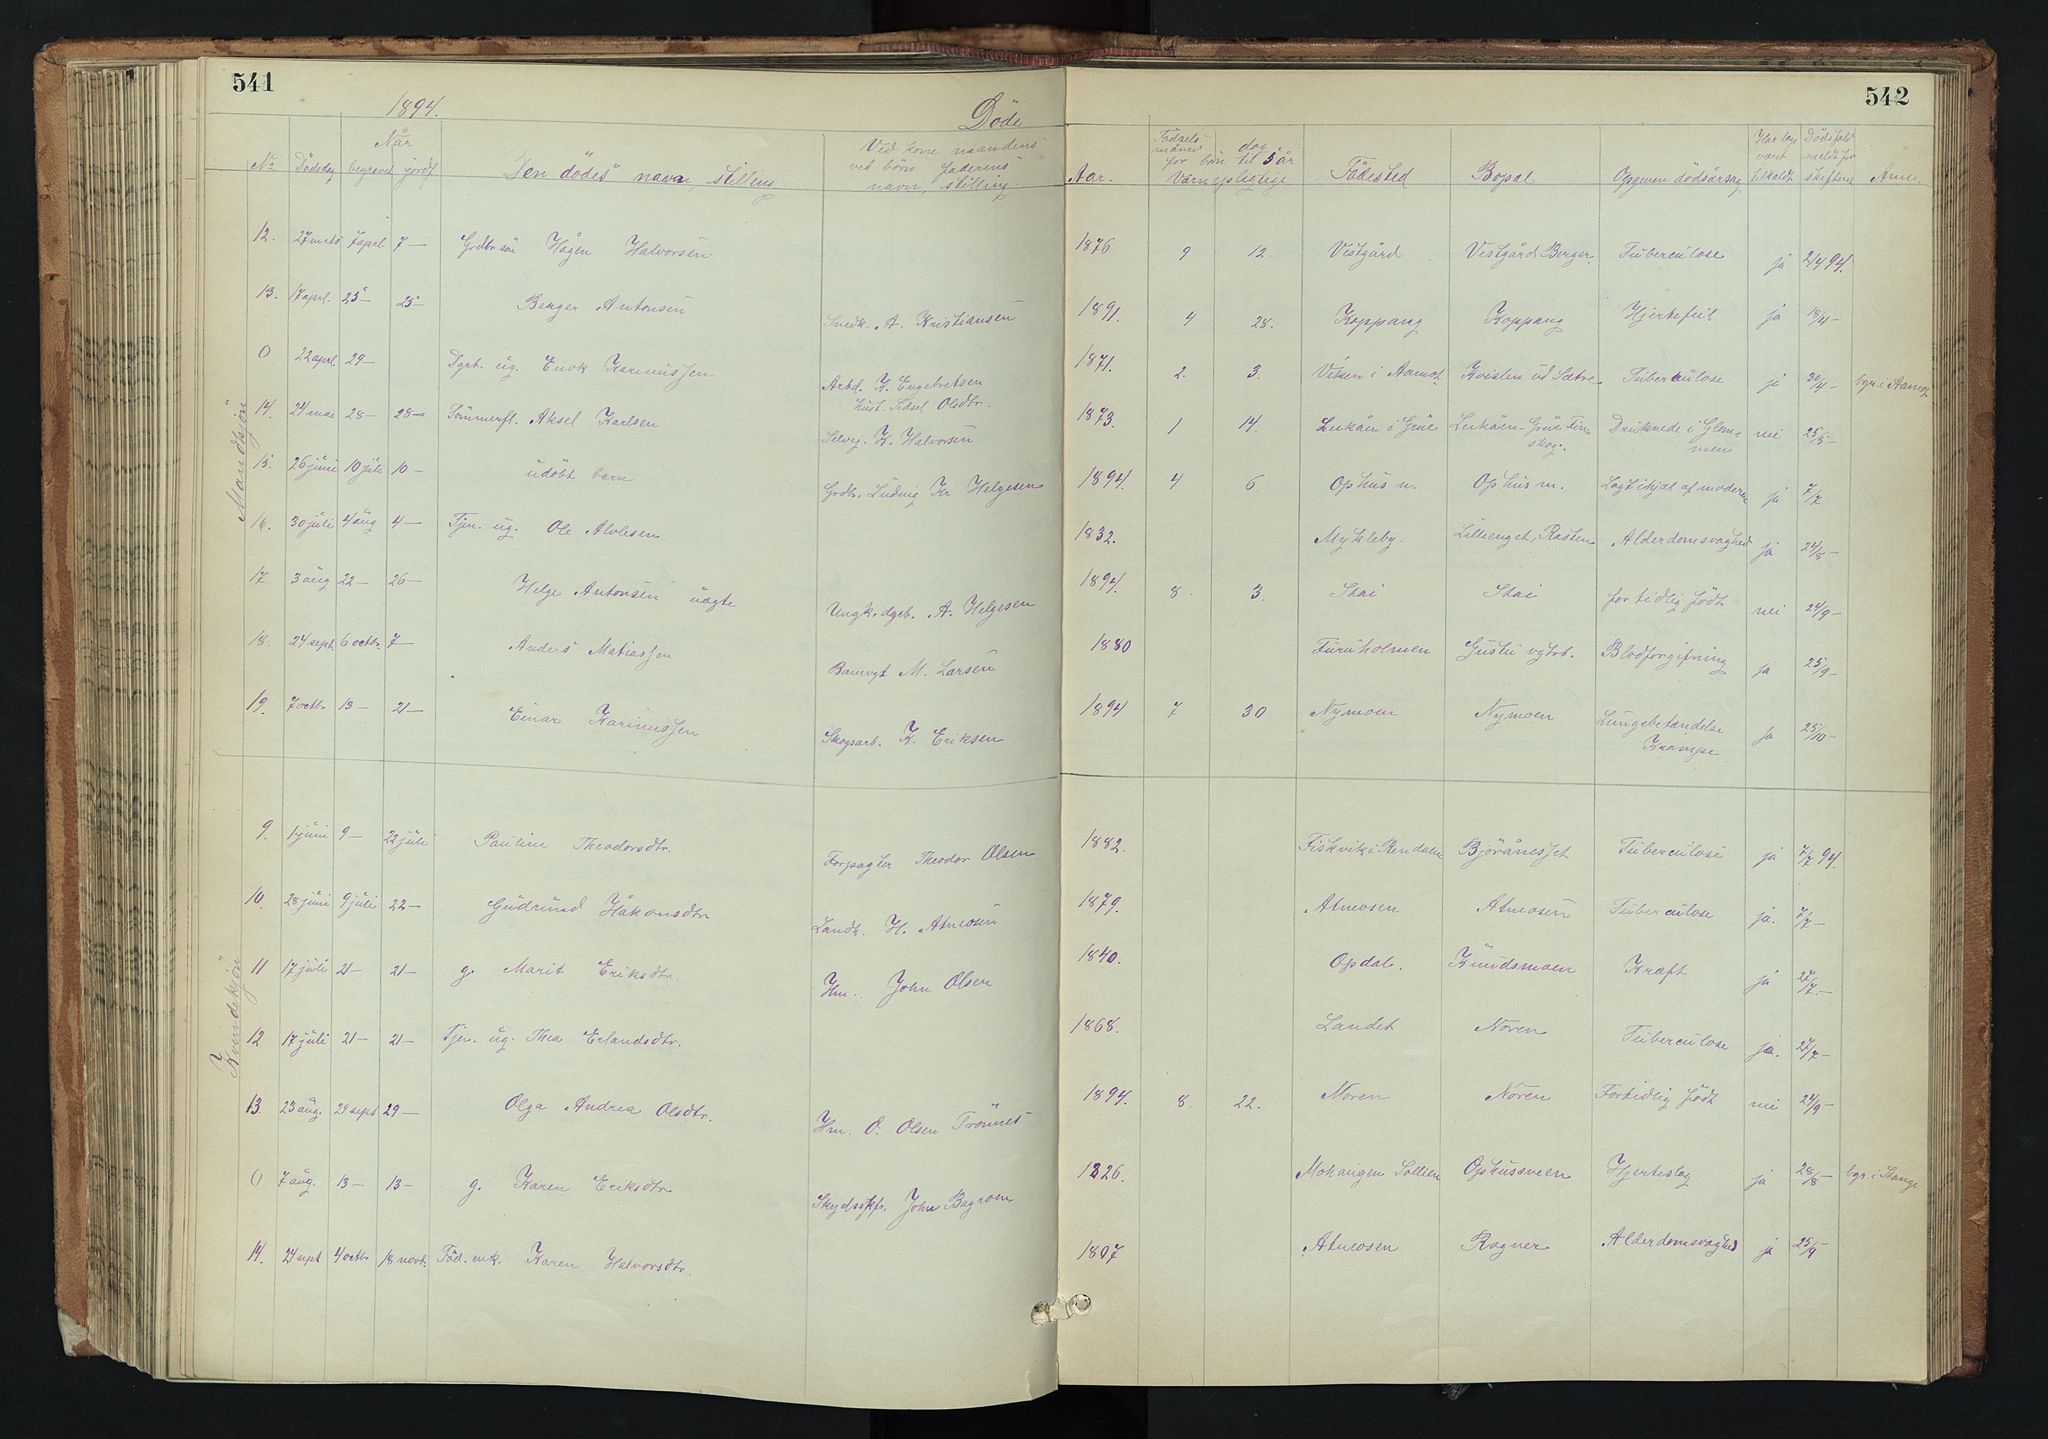 541
542
1894.
Döde
Når
No Dödsdag begravet jordf. Den dödes navn, stilling Ved kone mandens ved börn faderens navn, stilling. Aar. Fødsels maaned dag for börn til 5 år Værnepligtige Födested Bopæl Opgiven dödsårsag Har læge været tilkaldt Dödsfald meldt for skifteret Anm.
Mandkjön
12. 27 mrts 7 aprl. 7 — Grdbr. sön Hågen Halvorsen 1876 9 12. Vestgård Vestgård Berger. Tuberculose ja 2/4 94.
13. 17 aprl. 25 — 25 — Berger Antonsen Snedk. A. Kristiansen 1891. 4 28. Koppang Koppang Hjertefeil ja 18/4 —
0 22 aprl. 29 — Dgrb. ug. Enok Karinussen Arbd. K. Engebretsen hust. Sidsel Olsdtr. 1871. 2. 3. Viken i Aamot. Kvislen ud Sætre Tuberculose ja 30/4 — bgr. i Aamot
14. 24 mai 28 — 28 — Tömmerfl. Aksel Karlsen Selvej. K. Halvorsen 1873. 1 14. Leikåen i Grue Leikåen - Grue Finskog. Druknede i Glommen nei 25/5 —
15. 26 juni 10 juli 10 — udöbt barn Grdbr. Ludvig Kr. Helgesen 1894. 4 6. Ophus n. Ophus n. Lagt ihjæl af moderen ja 7/7
16. 30 juli 4 aug 4 — Tjen. ug. Ole Alvlesen 1832. Mykleby. Lillienget, Rasten Alderdomsvaghed ja 24/8 —
17. 3 aug 22 — 26 — Helge Antonsen uægte Ungk. dgrb. A. Helgesen 1894. 8. 3. Stai Stai for tidlig födt nei 24/9 —
18. 24 sept. 6 octbr. 7 — Anders Matiassen Banevgt M. Larsen 1880 Furuholmen Gustu vgtrb. Blodforgifning ja 25/9 —
19. 7 octbr 13 — 21 — Einar Karinussen Skogsarb. K. Eriksen 1894 7 30 Nymoen Nymoen Lungebetændelse Krampe ja 25/10 —
Kvindekjön
9. 1 juni 9 — 22 juli Pauline Theodorsdtr. Forpagter Theodor Olsen 1882. Fiskvik i Rendalen Björånesset Tuberculose ja 7/7 94.
10. 28 juni 9 juli 22 — Gudrund Håkonsdtr Landh. H. Atneosen 1879. Atneosen Atneosen Tuberculose ja. 7/7 —
11 17 juli 21 — 21 — g. Marit Eriksdtr. Hm. John Olsen 1840. Opdal. Knudsmoen Kræft ja 27/7. —
12 17 juli 21 — 21 — Tjen. ug. Thea Erlandsdtr. 1868. Landet Noren Tuberculose ja. 27/7 —
13. 23 aug. 29 sept 29 — Olga Andrea Olsdtr. Hm. O. Olsen Trönnes 1894. 8. 22. Noren Noren Fortidlig födt nei 24/9 —
0 7 aug. 13 — 13 — g. Karen Eriksdtr Skydsskfr. John Bagroen 1826. Mokangen Sollien Ophussveen Hjerteslag ja 28/8 — bgr. i Stange
14. 24 sept 4 octbr 18 novb. Föd. enk. Karen Halvorsdtr. 1807 Atneosen Rogner Alderdomsvaghed ja 25/9 —